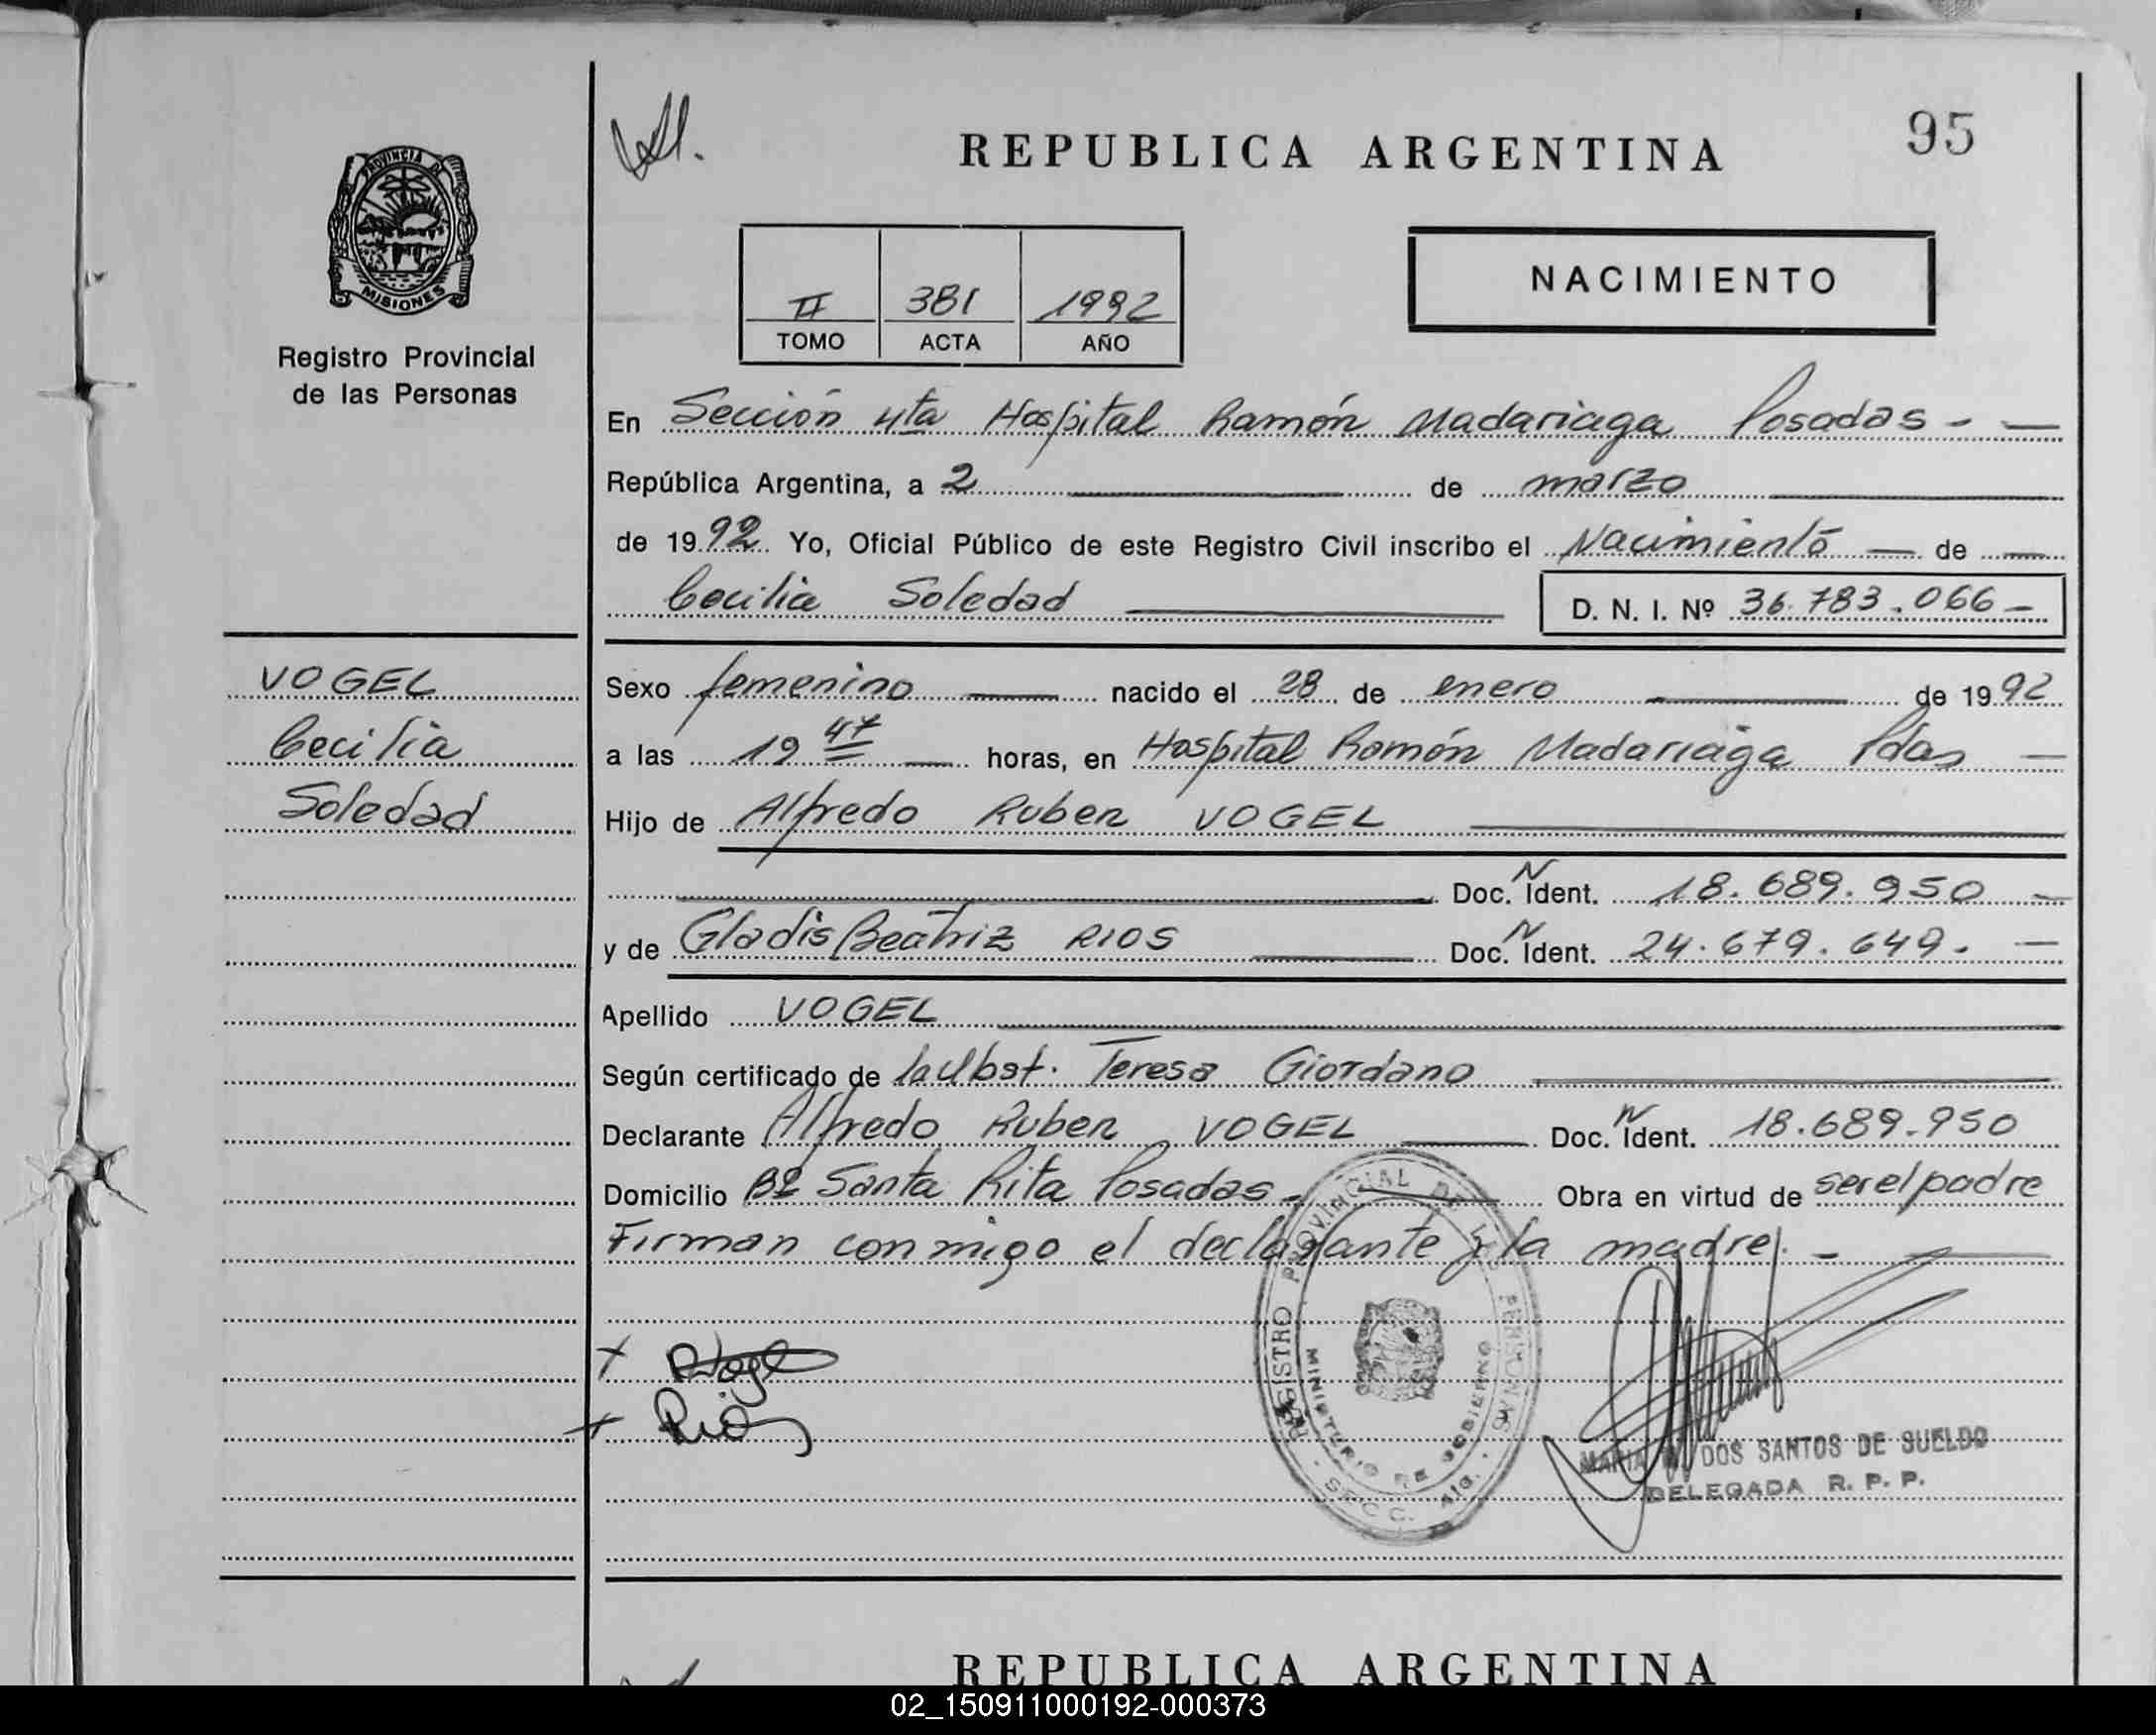 REPUBLICA ARGENTINA
95
PROVINCIA D
MISIONES
Registro Provincial
de las Personas
II 381 1992
TOMO ACTA AÑO
NACIMIENTO
En Sección 4ta Hospital Ramón Madariaga Posadas - —
República Argentina, a 2 de marzo
de 1992 Yo, Oficial Público de este Registro Civil inscribo el Nacimiento — de —
Cecilia Soledad
D. N. I. Nº 36.783.066 —
VOGEL
Cecilia
Soledad
Sexo femenino nacido el 28 de enero de 1992
a las 19 47 horas, en Hospital Ramón Madariaga Pdas —
Hijo de Alfredo Ruben VOGEL
Doc. N Ident. 18.689.950 —
y de Gladis Beatriz RIOS Doc. N Ident. 24.679.649. —
Apellido VOGEL
Según certificado de la Obst. Teresa Giordano
Declarante Alfredo Ruben VOGEL Doc. N Ident. 18.689.950
Domicilio Bº Santa Rita Posadas - Obra en virtud de ser el padre
Firman conmigo el declarante y la madre. —
REGISTRO PROVINCIAL DE LAS PERSONAS
MINISTERIO DE GOBIERNO
x RVogel
x Rios
MARIA DOS SANTOS DE SUELDO
DELEGADA R. P. P.
REPUBLICA ARGENTINA
02_150911000192-000373